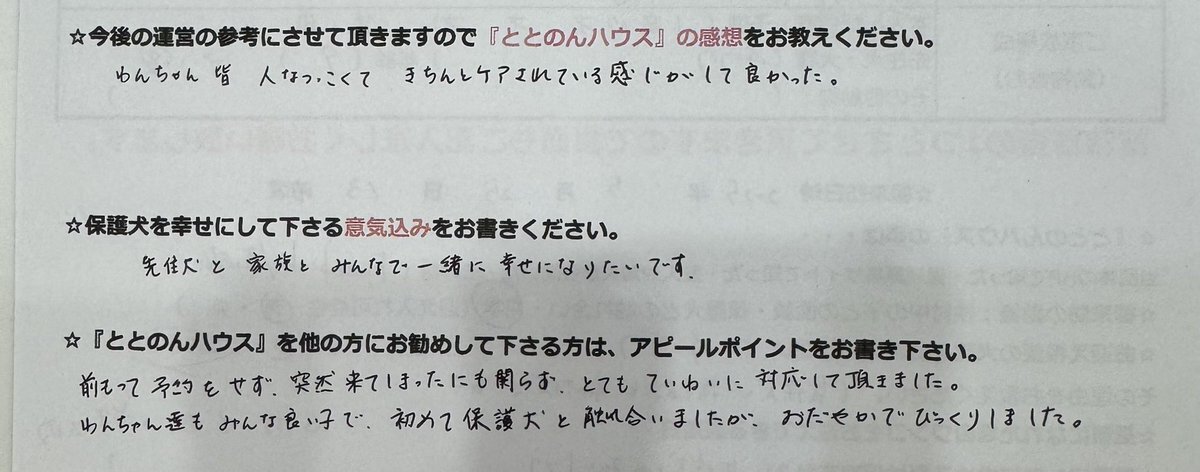 ☆今後の運営の参考にさせて頂きますので『ととのんハウス』の感想をお教えください。
わんちゃん皆 人なつっこくて きちんとケアされている感じがして良かった。
☆保護犬を幸せにして下さる意気込みをお書きください。
先住犬と家族とみんなで一緒に幸せになりたいです。
☆『ととのんハウス』を他の方にお勧めして下さる方は、アピールポイントをお書き下さい。
前もって予約をせず、突然来てしまったにも関らず、とてもていねいに対応して頂きました。
わんちゃん達もみんな良い子で、初めて保護犬と触れ合いましたが、おだやかでびっくりしました。